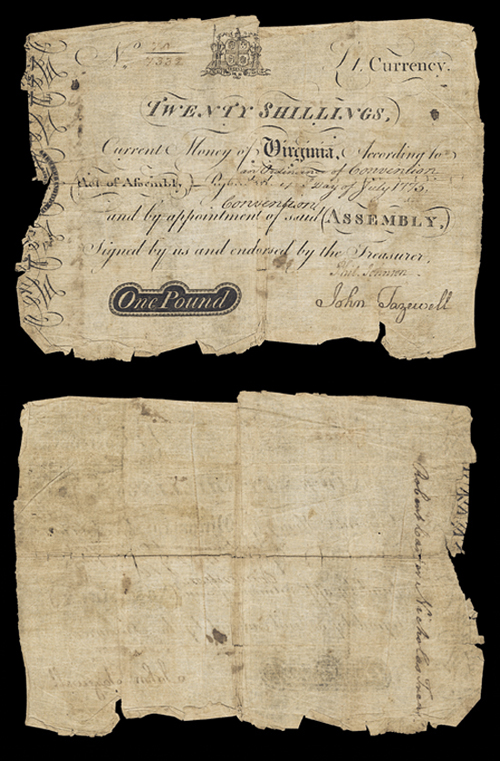 No 70
7332
£1. Currency.
TWENTY SHILLINGS,
Current Money of Virginia, According to
an Ordinance of Convention
Act of Assembly, 17 Day of July 1775.
Convention
and by appointment of said ASSEMBLY,
Signed by us and endorsed by the Treasurer,
Phil. Johnson
One Pound
John Tazewell
Robert Carter Nicholas Trear